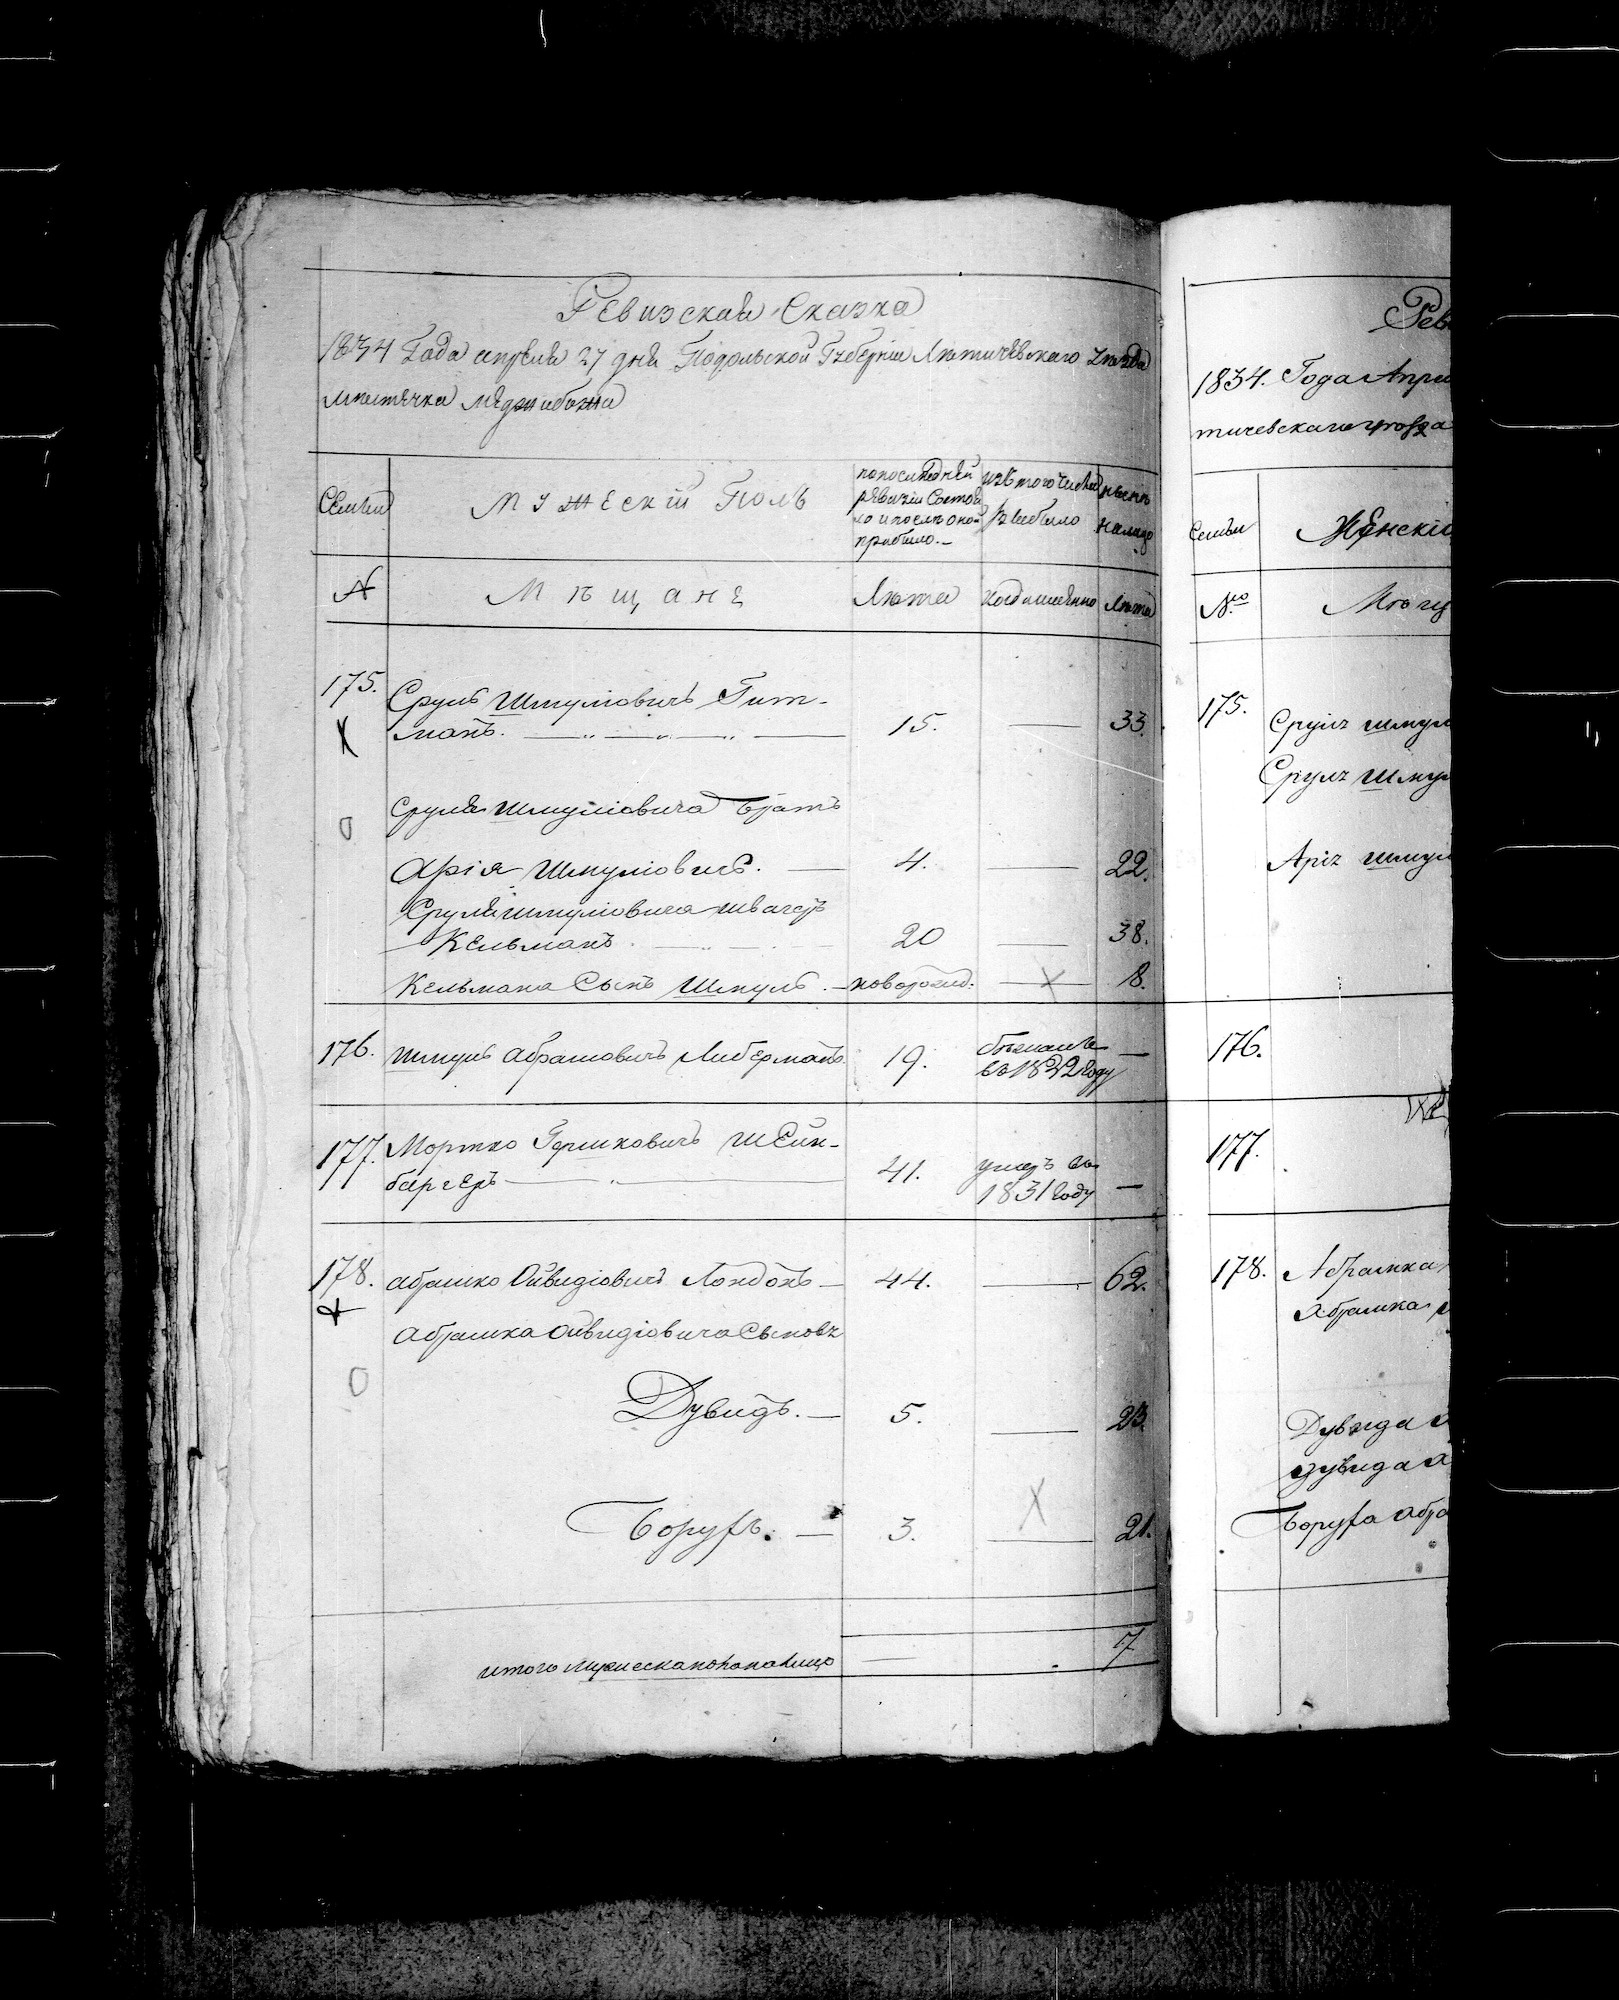 Ревизская Сказка
1834 Года апреля 27 дня Подольской Губернии Летичевского уезда
местечка Меджибожа
Семьи
Мужескій Полъ
по последней
ревизіи Состоя
ло и после оной
прибыло.-
изъ того числа
выбыло
ныне
на лицо
№
Мещане
Лета
когда именно
Лета
175.
Сруль Шмуліовичъ Гит-
манъ.
15.
33.
Сруля Шмуліовича братъ
Арія Шмуліовичъ.
4.
22.
Сруля Шмуліовича швагеръ
Кельманъ.
20
38.
Кельмана Сынъ Шмуль.
новорожд.
8.
176.
Шмуль Абрамовичъ Либерманъ.
19.
бежалъ
въ 1832 году
177.
Мортко Гершковичъ Шейн-
бергеръ
41.
умеръ въ
1831 году
178.
Абрамко Овидіовичъ Лондонъ
44.
62.
Абрамка Овидіовича Сыновя
Дувидъ.
5.
23.
Борухъ.
3.
21.
итого мужеска пола на лицо
7
Рев
1834. Года Апре
тичевскаго уезда
Семьи
Женскій
№
Мещ
175.
Сруля Шмул
Сруля Шмул
Арія Шмул
176.
177.
178.
Абрамка
Абрамка
Дувида А
Дувида А
Боруха Абра